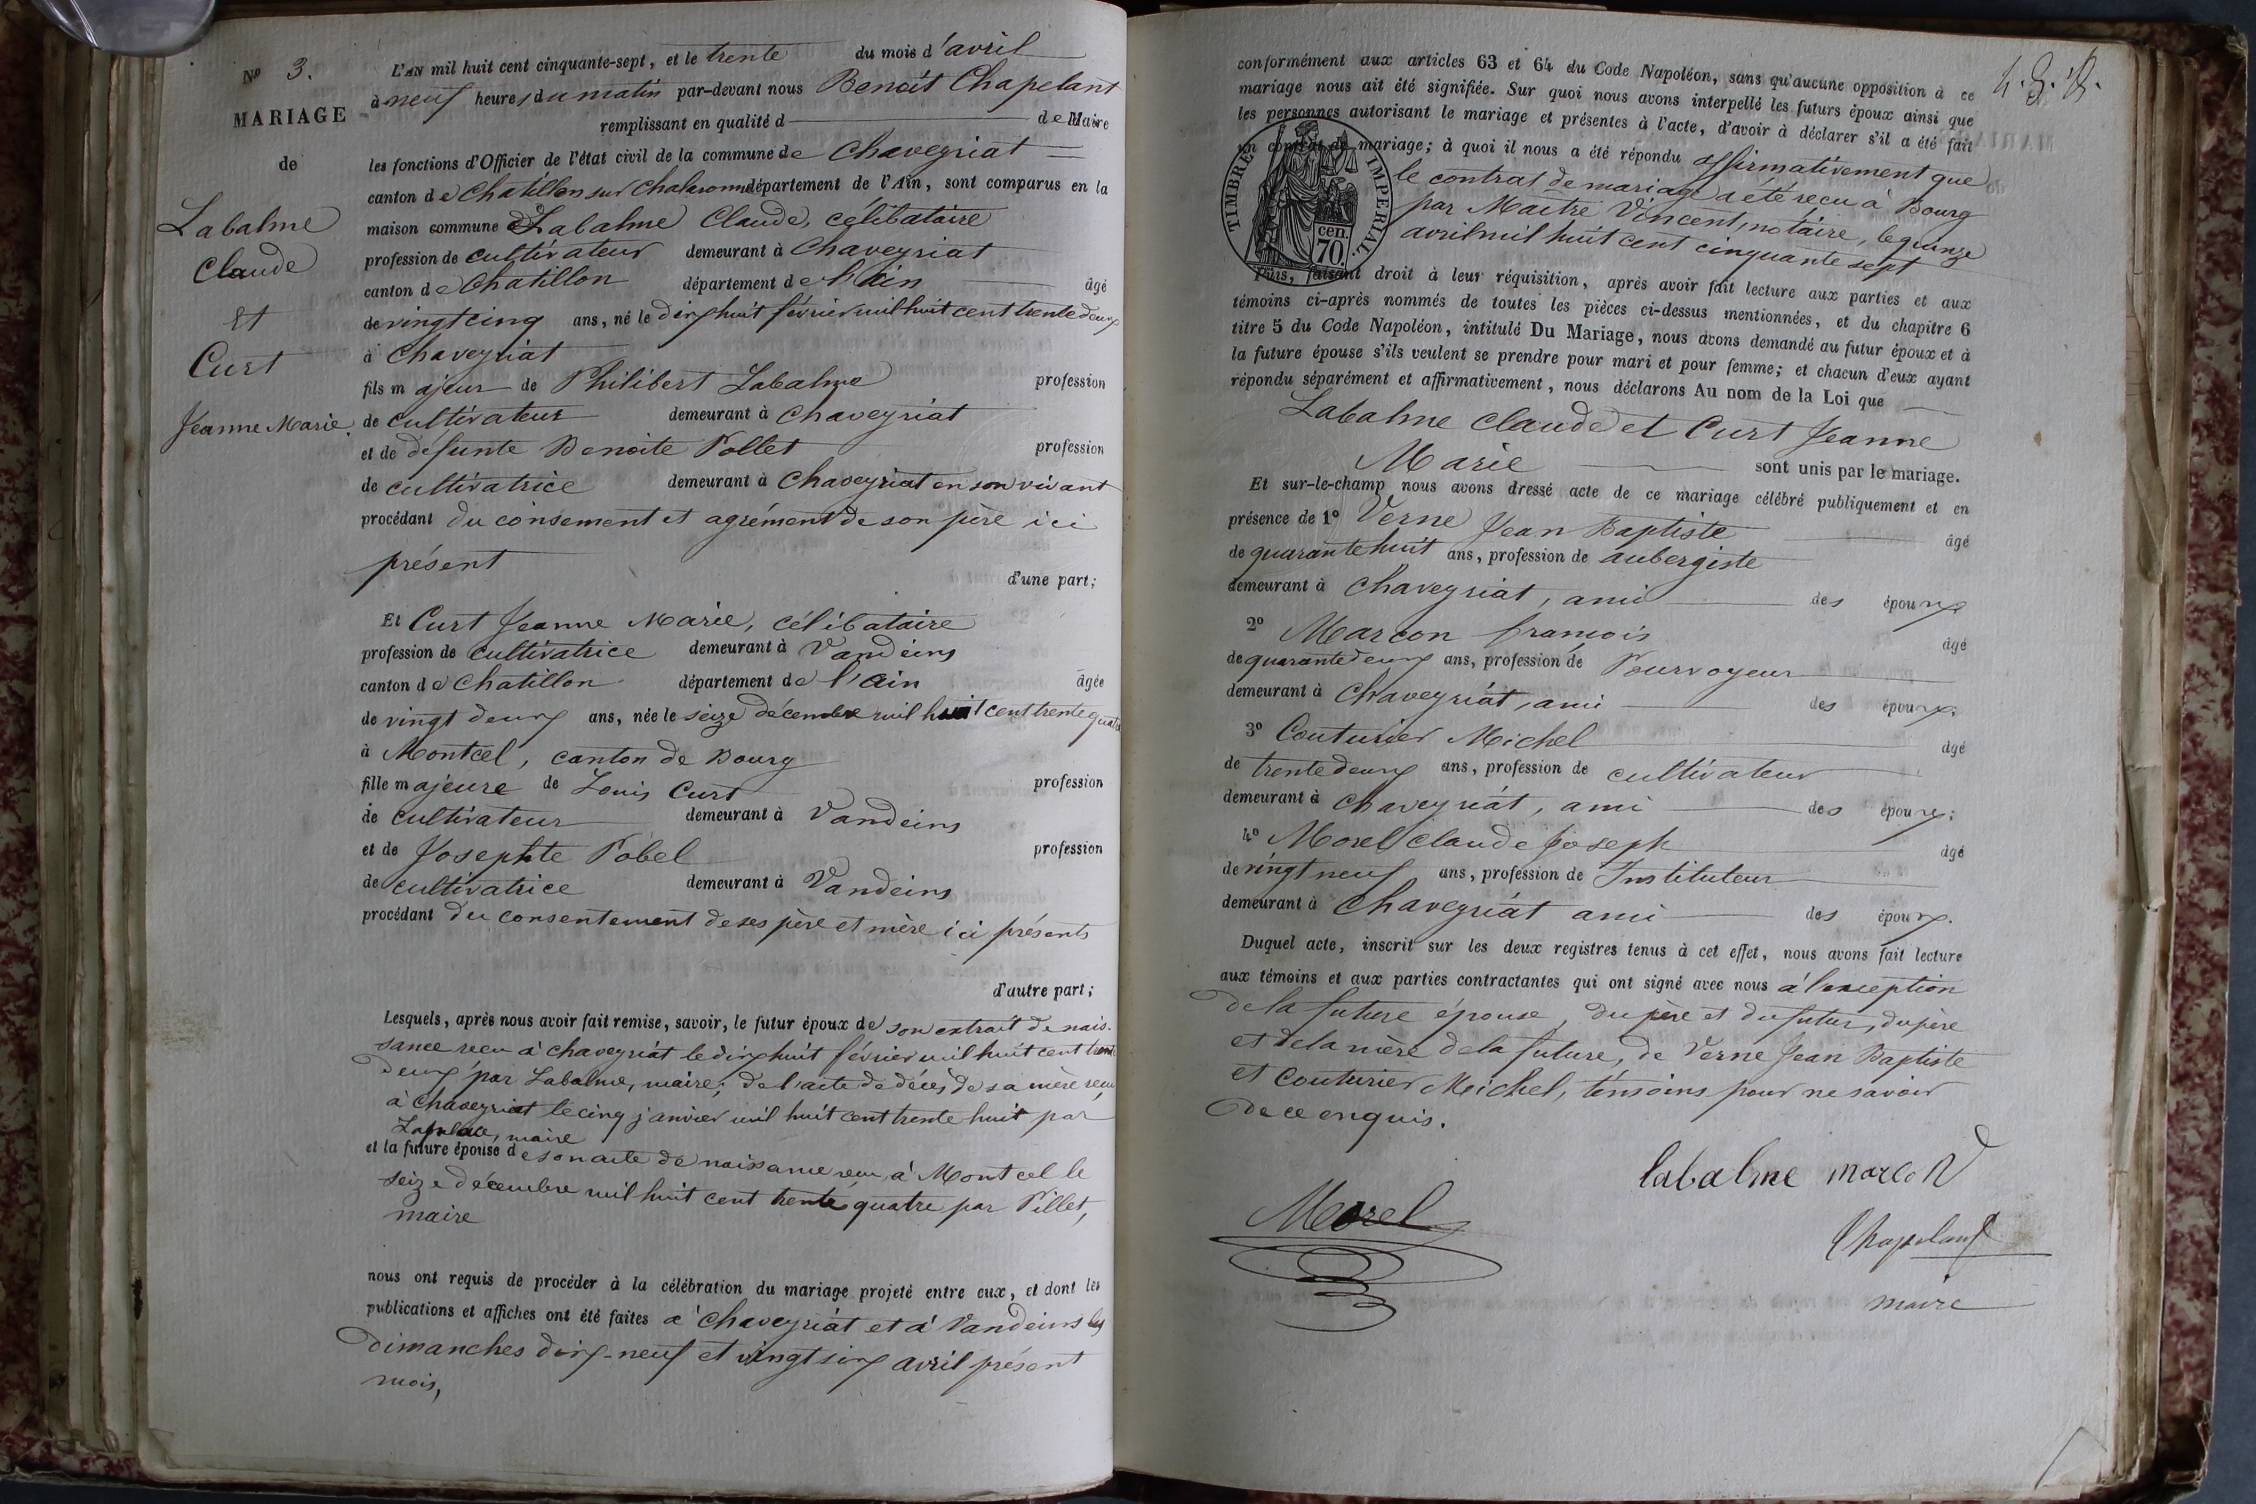 N° 3.
MARIAGE
de
Labalme
Claude
Et
Curt
Jeanne Marie.
L'AN mil huit cent cinquante-sept, et le trente du mois d'avril
à neuf heures du matin par-devant nous Benoît Chapelant
remplissant en qualité d de Maire
les fonctions d'Officier de l'état civil de la commune de Chaveyriat
canton de Chatillon sur Chalaronne département de l'Ain, sont comparus en la
maison commune Labalme Claude, célibataire
profession de cultivateur demeurant à Chaveyriat
canton de Chatillon département de l'Ain âgé
de vingt cinq ans, né le dix huit février mil huit cent trente deux
à Chaveyriat
fils majeur de Philibert Labalme profession
de cultivateur demeurant à Chaveyriat
et de défunte Benoite Pollet profession
de cultivatrice demeurant à Chaveyriat en son vivant
procédant du consement et agrément de son père ici
présent
d'une part;
Et Curt Jeanne Marie, célibataire
profession de cultivatrice demeurant à Vandeins
canton de Chatillon département de l'Ain âgée
de vingt deux ans, née le seize décembre mil huit cent trente quatre
à Montcel, canton de Bourg
fille majeure de Louis Curt profession
de cultivateur demeurant à Vandeins
et de Josephte Pobel profession
de cultivatrice demeurant à Vandeins
procédant du consentement de ses père et mère ici présents
d'autre part;
Lesquels, après nous avoir fait remise, savoir, le futur époux de son extrait de nais-
sance reçu à Chaveyriat le dix huit février mil huit cent trente
deux par Labalme, maire; de l'acte de décès de sa mère reçu
à Chaveyriat le cinq janvier mil huit cent trente huit par
maire
et la future épouse de son acte de naissance reçu à Montcel le
seize décembre mil huit cent trente quatre par Pillet,
maire
nous ont requis de procéder à la célébration du mariage projeté entre eux, et dont les
publications et affiches ont été faites à Chaveyriat et à Vandeins les
dimanches dix-neuf et vingt six avril présent
mois,
conformément aux articles 63 et 64 du Code Napoléon, sans qu'aucune opposition à ce
mariage nous ait été signifiée. Sur quoi nous avons interpellé les futurs époux ainsi que
les personnes autorisant le mariage et présentes à l'acte, d'avoir à déclarer s'il a été fait
un contrat de mariage; à quoi il nous a été répondu affirmativement que
le contrat de mariage a été reçu à Bourg
par Maitre Vincent, notaire, le quinze
avril mil huit cent cinquante sept
TIMBRE IMPERIAL.
cen.
70.
Puis, faisant droit à leur réquisition, après avoir fait lecture aux parties et aux
témoins ci-après nommés de toutes les pièces ci-dessus mentionnées, et du chapitre 6
titre 5 du Code Napoléon, intitulé Du Mariage, nous avons demandé au futur époux et à
la future épouse s'ils veulent se prendre pour mari et pour femme; et chacun d'eux ayant
répondu séparément et affirmativement, nous déclarons Au nom de la Loi que
Labalme Claude et Curt Jeanne
Marie sont unis par le mariage.
Et sur-le-champ nous avons dressé acte de ce mariage célébré publiquement et en
présence de 1° Verne Jean Baptiste âgé
de quarante huit ans, profession de aubergiste
demeurant à Chaveyriat, ami des époux
2° Marcon françois âgé
de quarante deux ans, profession de Pourvoyeur
demeurant à Chaveyriat, ami des époux;
3° Couturier Michel âgé
de trente deux ans, profession de cultivateur
demeurant à Chaveyriat, ami des époux;
4° Morel Claude Joseph âgé
de vingt neuf ans, profession de Instituteur
demeurant à Chaveyriat ami des époux.
Duquel acte, inscrit sur les deux registres tenus à cet effet, nous avons fait lecture
aux témoins et aux parties contractantes qui ont signé avec nous à l'exception
de la future épouse, du père et du futur, du père
et de la mère de la future, de Verne Jean Baptiste
et Couturier Michel, témoins pour ne savoir
de ce enquis.
labalme marcon
Morel
Chapelant
maire